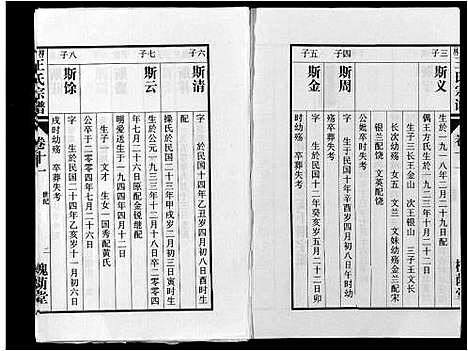 三子
斯义
生於一九一八年二月二十九日配
偶王方氏生於一九二三年十月二十
生子三长王金山 次王银山 三子王大
长次幼殇 女五 文兰 文妹幼殇金兰配宋
银兰配饶 文英配饶
公妣卒时失考 卒葬失考
四子
斯周
生於民国十年辛酉岁四月初八日戌时幼
殇 卒葬失考
五子
斯金
於民国十二年癸亥岁五月二十二日卯
时幼殇 卒葬失考
六子
斯清 配
於民国十四年乙丑岁四月初八日酉时生
七子
斯云
操氏於民国二十三年甲戌岁二月初三日酉时生
生於公元一九三三年十二月十八日卒二零零四
年七月二十六日原配金锐继配
明爱送生于一九四四年四月十二日
生子一 文才 生女一国秀配黄氏
公卒于二零零四年七月二十六日
八子
斯馀
生於民国二十四年乙亥岁十一月初六日
戌时幼殇 卒葬失考
王氏宗谱
卷十一
世纪
二
槐荫堂